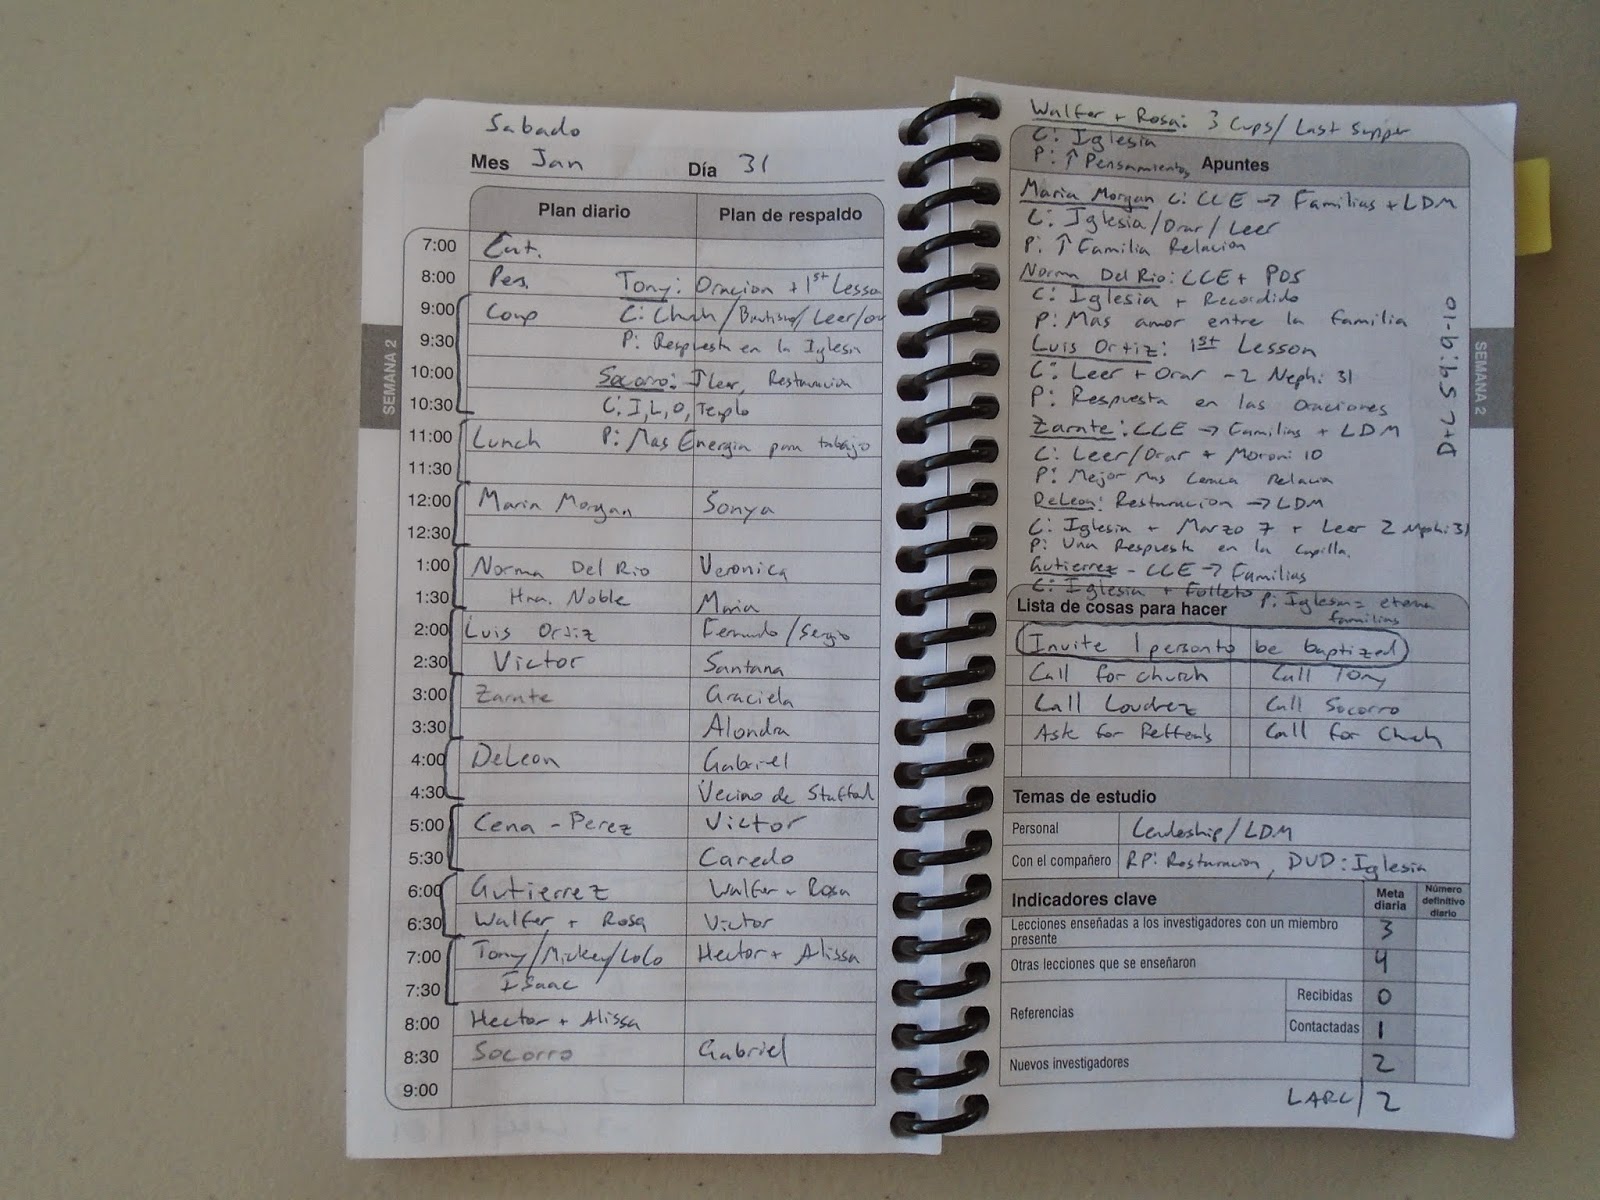 Sabado
Mes Jan Día 31
Plan diario Plan de respaldo
7:00
8:00 Pers. Tony: Oracion + 1st Lesson
9:00 Comp C: Church/Bautismo/Leer/or
9:30 P: Respuesta en la Iglesia
10:00 Socorro: Leer, Restauracion
10:30 C: I, L, O, Templo
11:00 Lunch P: Mas Energia para trabajo
11:30
12:00 Maria Morgan Sonya
12:30
1:00 Norma Del Rio Veronica
1:30 Hna. Noble Maria
2:00 Luis Ortiz Fernando/Sergio
2:30 Victor Santana
3:00 Zarate Graciela
3:30 Alondra
4:00 DeLeon Gabriel
4:30 Vecino de
5:00 Cena - Perez Victor
5:30 Caredo
6:00 Gutierrez Walfer + Rosa
6:30 Walfer + Rosa Victor
7:00 Tony/Mickey/Lolo Hector + Alissa
7:30 Isaac
8:00 Hector + Alissa
8:30 Socorro Gabriel
9:00
SEMANA 2
Walfer + Rosa: 3 Cups/Last Supper
C: Iglesia
P: ↑ Pensamientos Apuntes
Maria Morgan C: CCE → Familias + LDM
C: Iglesia/Orar/Leer
P: ↑ Familia Relacion
Norma Del Rio: CCE + PDS
C: Iglesia + Recordido
P: Mas amor entre la familia
Luis Ortiz: 1st Lesson
C: Leer + Orar - 2 Nephi 31
P: Respuesta en las Oraciones
Zarate: CCE → Familias + LDM
C: Leer/Orar + Moroni 10
P: Mejor Mas Relacion
DeLeon: Restauracion → LDM
C: Iglesia + Marzo 7 + Leer 2 Nephi 31
P: Una Respuesta en la Capilla.
Gutierrez - CCE → Familias
C: Iglesia + Folleto P: Iglesia = eterna
familias
D+C 59:9-10
SEMANA 2
Lista de cosas para hacer
Invite 1 person to be baptized
Call for church Call Tony
Call Loudrez Call Socorro
Ask for Call for Church
Temas de estudio
Personal Leadership/LDM
Con el compañero RP: Restauracion, DVD: Iglesia
Indicadores clave Meta diaria Número definitivo diario
Lecciones enseñadas a los investigadores con un miembro presente 3
Otras lecciones que se enseñaron 4
Referencias Recibidas 0
Contactadas 1
Nuevos investigadores 2
LARC/2